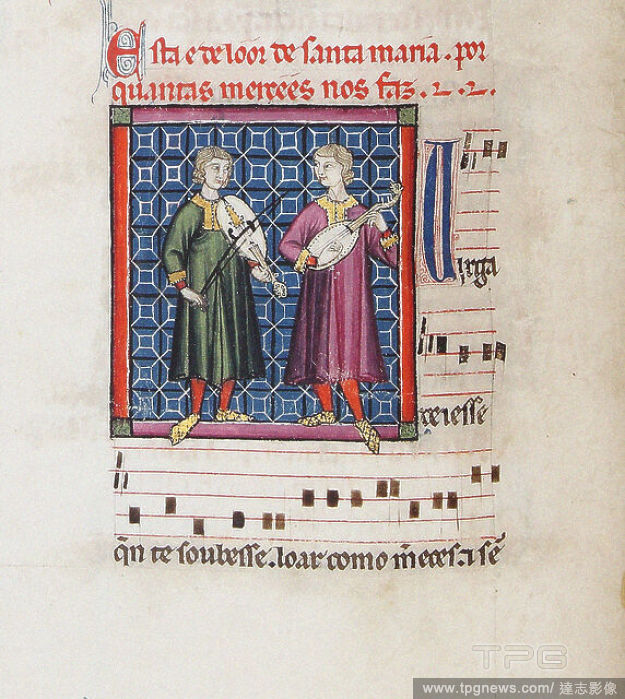 Esta e de loor de santa maria. por
quantas mercees nos faz.
Uirga
qn te soubesse. loar como meces. a se
TPG
www.tpgnews.com / 達志影像